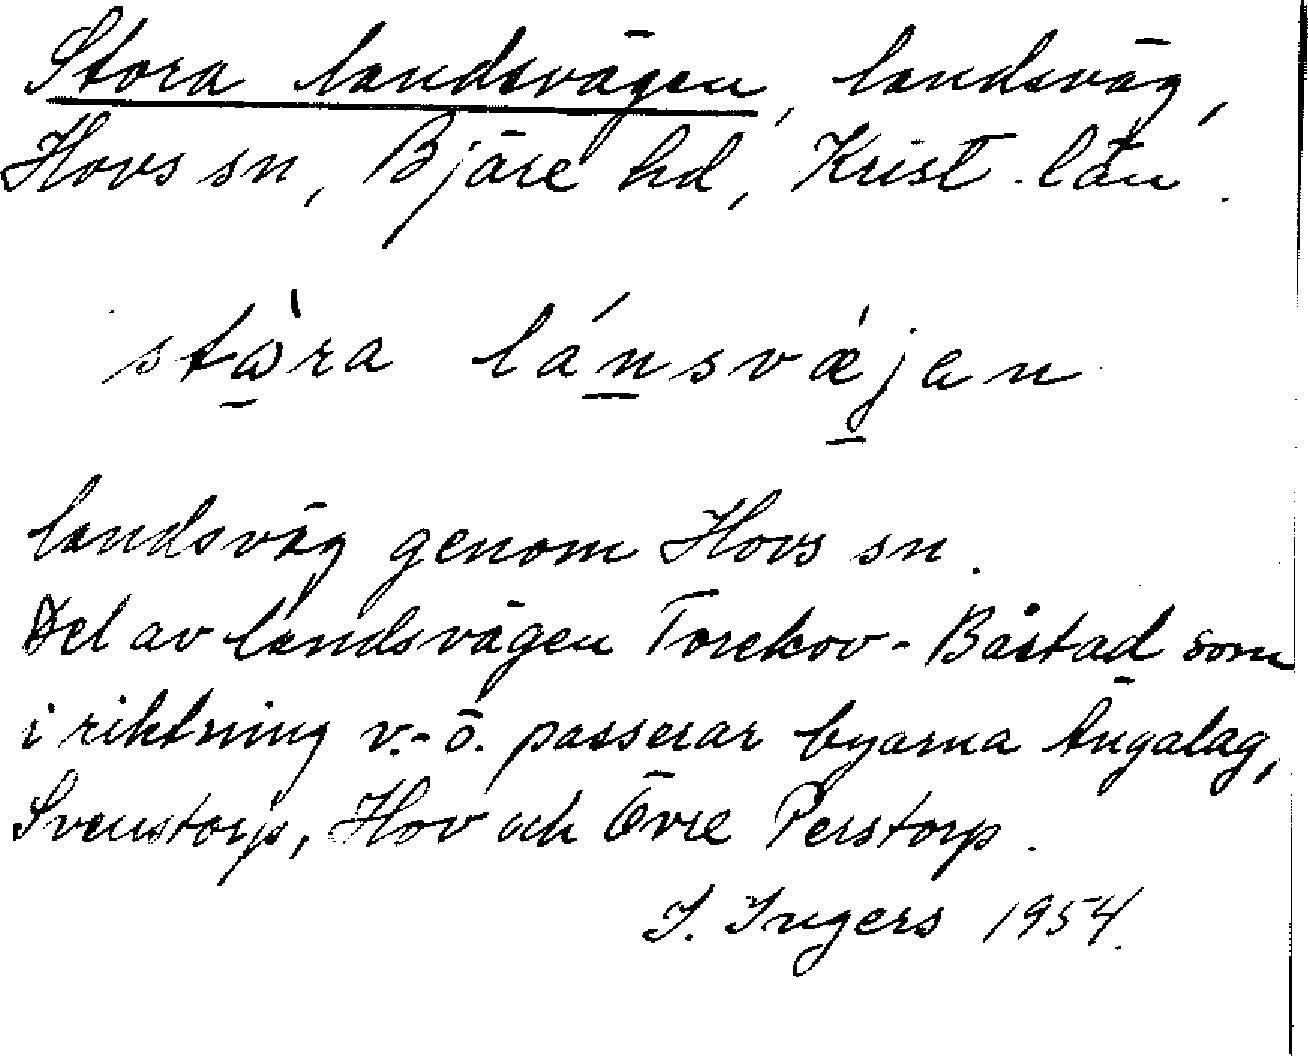 Stora landsvägen, landsväg,
Hovs sn, Bjäre hd, Krist. län.
stὼra lánsvǽjen
landsväg genom Hovs sn.
Del av landsvägen Torekov - Båstad som
i riktning v.- ö. passerar byarna Ängalag,
Svenstorp, Hov och Övre Perstorp.
I. Ingers 1954.